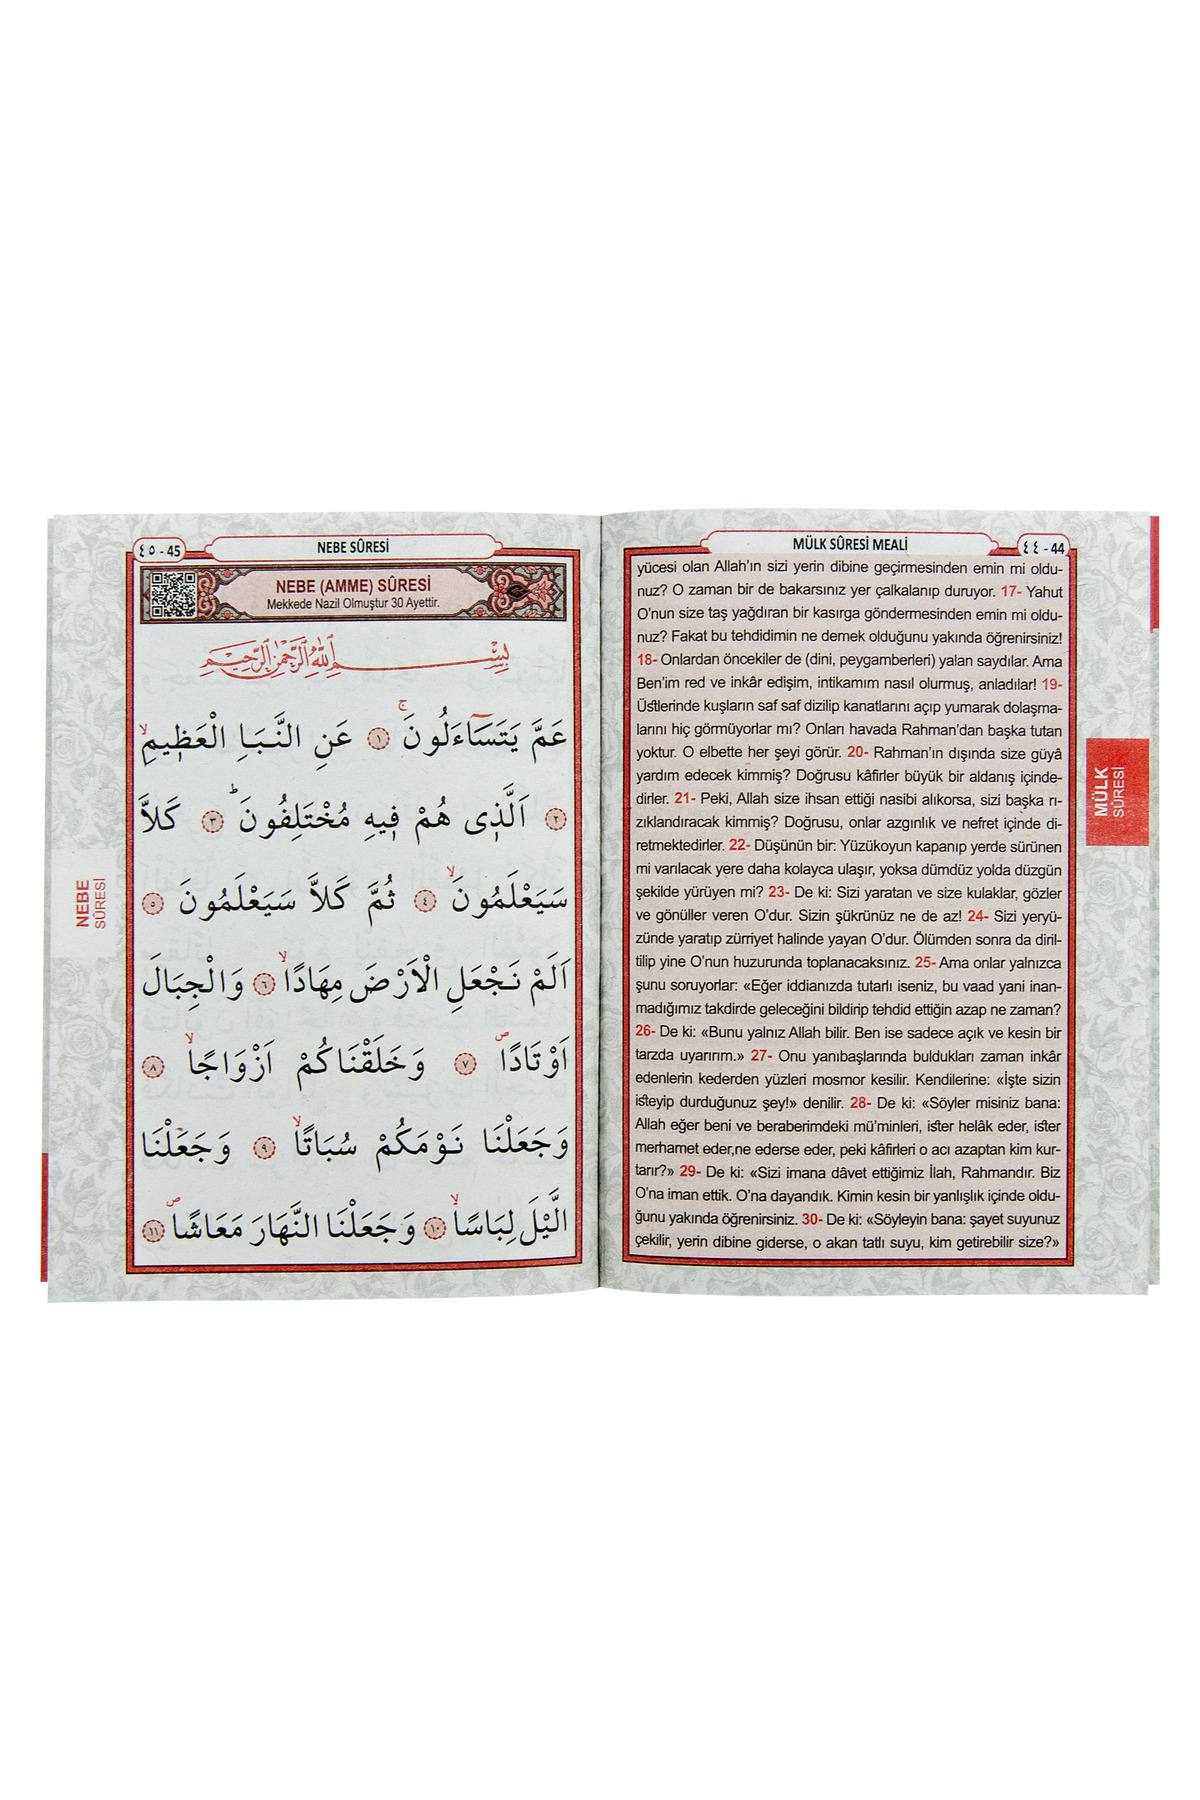 MÜLK SÛRESİ MEALİ
٤٤ - 44
yücesi olan Allah’ın sizi yerin dibine geçirmesinden emin mi oldu-
nuz? O zaman bir de bakarsınız yer çalkalanıp duruyor. 17- Yahut
O’nun size taş yağdıran bir kasırga göndermesinden emin mi oldu-
nuz? Fakat bu tehdidimin ne demek olduğunu yakında öğrenirsiniz!
18- Onlardan öncekiler de (dini, peygamberleri) yalan saydılar. Ama
Ben’im red ve inkâr edişim, intikamım nasıl olurmuş, anladılar! 19-
Üstlerinde kuşların saf saf dizilip kanatlarını açıp yumarak dolaşma-
larını hiç görmüyorlar mı? Onları havada Rahman’dan başka tutan
yoktur. O elbette her şeyi görür. 20- Rahman’ın dışında size güyâ
yardım edecek kimmiş? Doğrusu kâfirler büyük bir aldanış içinde-
dirler. 21- Peki, Allah size ihsan ettiği nasibi alıkorsa, sizi başka rı-
zıklandıracak kimmiş? Doğrusu, onlar azgınlık ve nefret içinde di-
retmektedirler. 22- Düşünün bir: Yüzükoyun kapanıp yerde sürünen
mi varılacak yere daha kolayca ulaşır, yoksa dümdüz yolda düzgün
şekilde yürüyen mi? 23- De ki: Sizi yaratan ve size kulaklar, gözler
ve gönüller veren O’dur. Sizin şükrünüz ne de az! 24- Sizi yeryü-
zünde yaratıp zürriyet halinde yayan O’dur. Ölümden sonra da diril-
tilip yine O’nun huzurunda toplanacaksınız. 25- Ama onlar yalnızca
şunu soruyorlar: «Eğer iddianızda tutarlı iseniz, bu vaad yani inan-
madığımız takdirde geleceğini bildirip tehdid ettiğin azap ne zaman?
26- De ki: «Bunu yalnız Allah bilir. Ben ise sadece açık ve kesin bir
tarzda uyarırım.» 27- Onu yanıbaşlarında buldukları zaman inkâr
edenlerin kederden yüzleri mosmor kesilir. Kendilerine: «İşte sizin
isteyip durduğunuz şey!» denilir. 28- De ki: «Söyler misiniz bana:
Allah eğer beni ve beraberimdeki mü’minleri, ister helâk eder, ister
merhamet eder,ne ederse eder, peki kâfirleri o acı azaptan kim kur-
tarır?» 29- De ki: «Sizi imana dâvet ettiğimiz İlah, Rahmandır. Biz
O’na iman ettik. O’na dayandık. Kimin kesin bir yanlışlık içinde oldu-
ğunu yakında öğrenirsiniz. 30- De ki: «Söyleyin bana: şayet suyunuz
çekilir, yerin dibine giderse, o akan tatlı suyu, kim getirebilir size?»
MÜLK
SÛRESİ
٤٥ - 45
NEBE SÛRESİ
NEBE (AMME) SÛRESİ
Mekkede Nazil Olmuştur 30 Ayettir.
بِسْمِ اللّٰهِ الرَّحْمٰنِ الرَّحِيمِ
عَمَّ يَتَسَٓاءَلُونَۚ ﴿١﴾ عَنِ النَّبَاِ الْعَظ۪يمِۙ
﴿٢﴾ اَلَّذ۪ى هُمْ ف۪يهِ مُخْتَلِفُونَؕ ﴿٣﴾ كَلَّا
سَيَعْلَمُونَۙ ﴿٤﴾ ثُمَّ كَلَّا سَيَعْلَمُونَ ﴿٥﴾
اَلَمْ نَجْعَلِ الْاَرْضَ مِهَادًاۙ ﴿٦﴾ وَالْجِبَالَ
اَوْتَادًاۖ ﴿٧﴾ وَخَلَقْنَاكُمْ اَزْوَاجًاۙ ﴿٨﴾
وَجَعَلْنَا نَوْمَكُمْ سُبَاتًاۙ ﴿٩﴾ وَجَعَلْنَا
الَّيْلَ لِبَاسًاۙ ﴿١٠﴾ وَجَعَلْنَا النَّهَارَ مَعَاشًاۖ ﴿١١﴾
NEBE
SÛRESİ